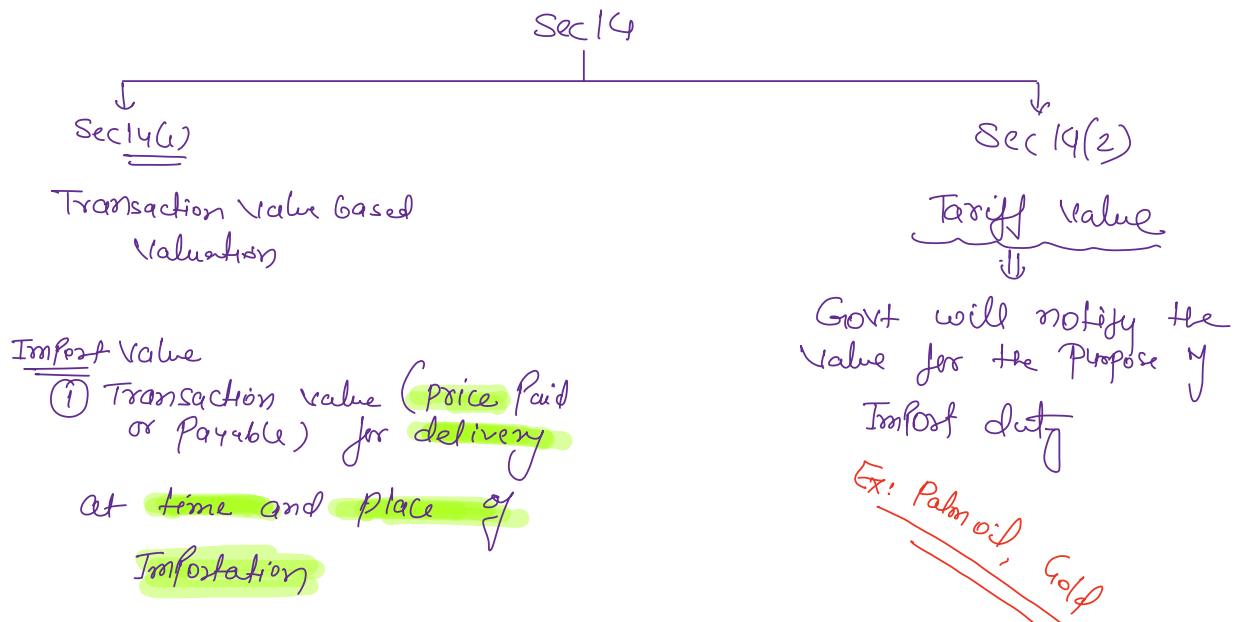 Sec 14
Sec 14(1)
Transaction value based
valuation
Import value
① Transaction value (price Paid
or Payable) for delivery
at time and place of
Importation
Sec 14(2)
Tariff value
Govt will notify the
value for the Purpose of
Import duty
Ex: Palm oil, Gold